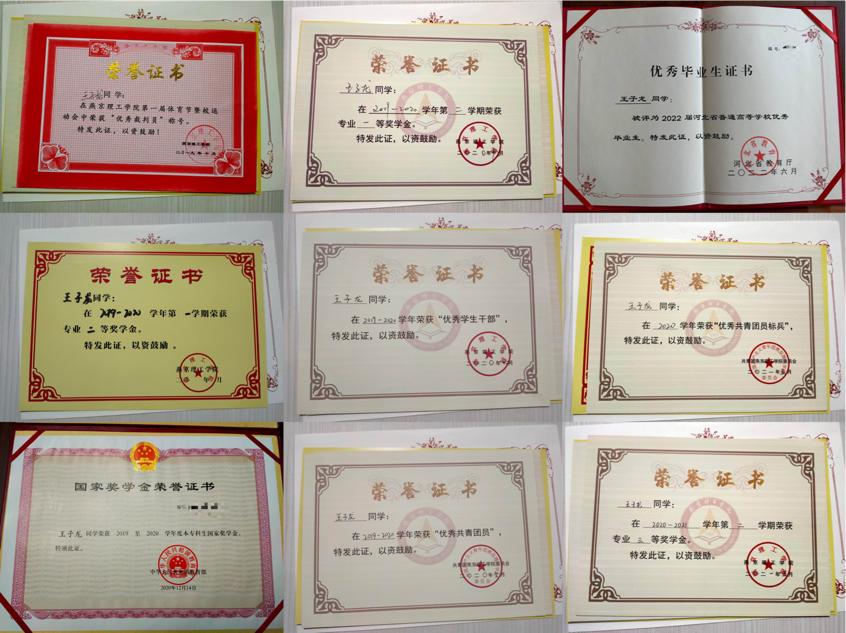 荣誉证书
王子龙同学：
在燕京理工学院第一届体育节暨校运
动会中荣获“优秀裁判员”称号。
特发此证，以资鼓励！
荣誉证书
王子龙 同学：
在 2019-2020 学年第 二 学期荣获
专业 一 等奖学金。
特发此证，以资鼓励。
优秀毕业生证书
王子龙 同学：
被评为 2022 届河北省普通高等学校优秀
毕业生。特发此证，以资鼓励。
河北省教育厅
二〇二二年六月
荣誉证书
王子龙同学：
在 2019-2020 学年第 一 学期荣获
专业 二 等奖学金。
特发此证，以资鼓励。
燕京理工学院
荣誉证书
王子龙 同学：
在 2019-2020 学年荣获“优秀学生干部”，
特发此证，以资鼓励。
荣誉证书
王子龙 同学：
在 2020 学年荣获“优秀共青团员标兵”，
特发此证，以资鼓励。
国家奖学金荣誉证书
王子龙 同学荣获 2019 至 2020 学年度本专科生国家奖学金。
特颁此证。
中华人民共和国教育部
2020年12月14日
荣誉证书
王子龙 同学：
在 2019-2020 学年荣获“优秀共青团员”，
特发此证，以资鼓励。
荣誉证书
王子龙 同学：
在 2020-2021 学年第 二 学期荣获
专业 三 等奖学金。
特发此证，以资鼓励。